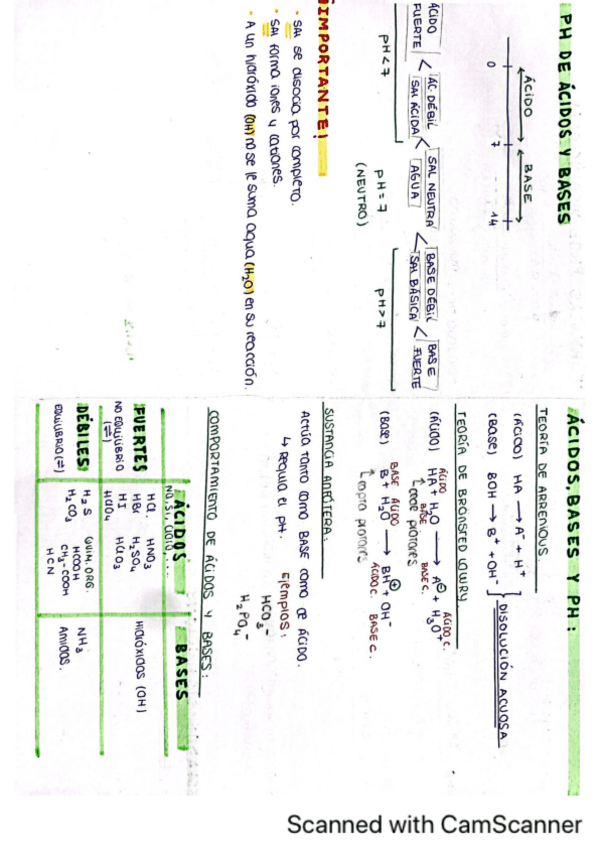 ÁCIDOS, BASES Y PH:
TEORÍA DE ARRENIOUS.
(ÁCIDO) HA → A⁻ + H⁺
(BASE) BOH → B⁺ + OH⁻
DISOLUCIÓN ACUOSA
TEORÍA DE BRONSTED LOWRY
ÁCIDO BASE BASE C. ÁCIDO C.
(ÁCIDO) HA + H₂O → A⊖ + H₃O⁺
↑ ceder protones
BASE ÁCIDO ÁCIDO C. BASE C.
(BASE) B + H₂O → BH⊕ + OH⁻
↑ capta protones
SUSTANCIA ANFÓTERA:
Actúa tanto como BASE como de ÁCIDO.
↳ Regula el pH.
Ejemplos:
HCO₃⁻
H₂PO₄⁻
COMPORTAMIENTO DE ÁCIDOS Y BASES:
ÁCIDOS BASES
FUERTES
NO EQUILIBRIO
(⇌)
HCl HNO₃
HBr H₂SO₄
HI HClO₃
HClO₄
HIDRÓXIDOS (OH)
DÉBILES
EQUILIBRIO (⇌)
H₂S QUIM. ORG.
H₂CO₃ HCOOH
CH₃-COOH
HCN
NH₃
AMIDAS.
PH DE ÁCIDOS Y BASES
ÁCIDO BASE
0 7 14
ÁCIDO FUERTE < AC. DÉBIL SAL ÁCIDA < SAL NEUTRA AGUA < BASE DÉBIL SAL BÁSICA < BASE FUERTE
pH < 7 pH = 7 pH > 7
(NEUTRO)
¡IMPORTANTE!
• SAL se disocia por completo.
• SAL forma iones y cationes.
• A un hidróxido (OH) no se le suma agua (H₂O) en su reacción.
Scanned with CamScanner